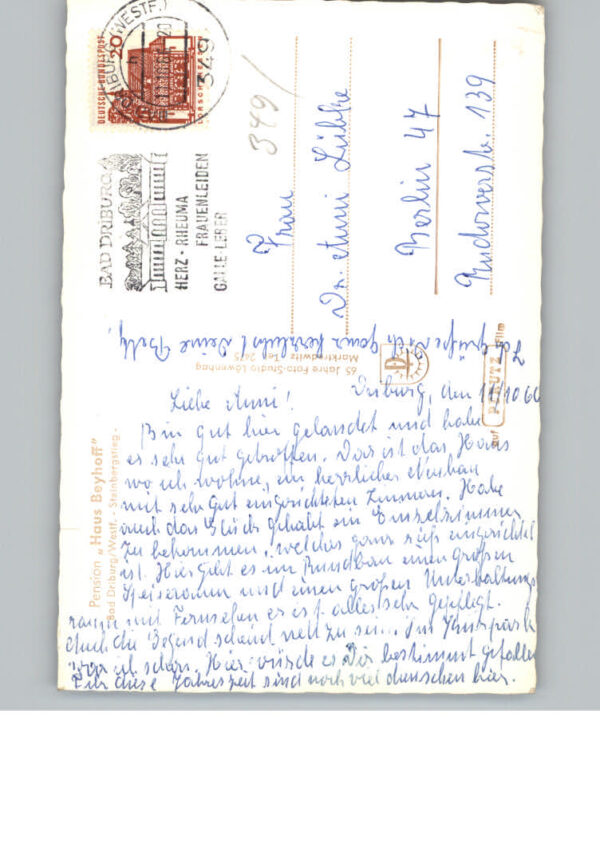 BAD DRIBURG (WESTF.)
20
349
DEUTSCHE BUNDESPOST
20
LORSCH HESSEN
BAD DRIBURG
HERZ · RHEUMA
FRAUENLEIDEN
GALLE-LEBER
349/
Frau
Dr. Anni Lübke
Berlin 47
Rudowerstr. 139
65 Jahre Foto-Studio Löwenhag
Marktredwitz Tel. 2475
auf PERUTZ Film
Pension „Haus Beyhoff"
Bad Driburg/Westf. - Steinbergstieg -
Driburg, den 11/10 66
Liebe Anni!
Bin gut hier gelandet und habe
es sehr gut getroffen. Das ist das Haus
wo ich wohne, ein herrlicher Neubau
mit sehr gut eingerichteten Zimmern. Habe
auch das Glück gehabt ein Einzelzimmer
zu bekommen, welches ganz süß eingerichtet
ist. Hier gibt es im Rundbau einen großen
Speiseraum und einen großen Unterhaltungs
raum mit Fernsehen es ist alles sehr gepflegt.
Auch die Gegend scheint nett zu sein. Im Kurpark
war ich schon. Hier würde es Dir bestimmt gefallen
Für diese Jahreszeit sind noch viel Menschen hier.
Ich grüße Dich ganz herzlichst Deine Betty